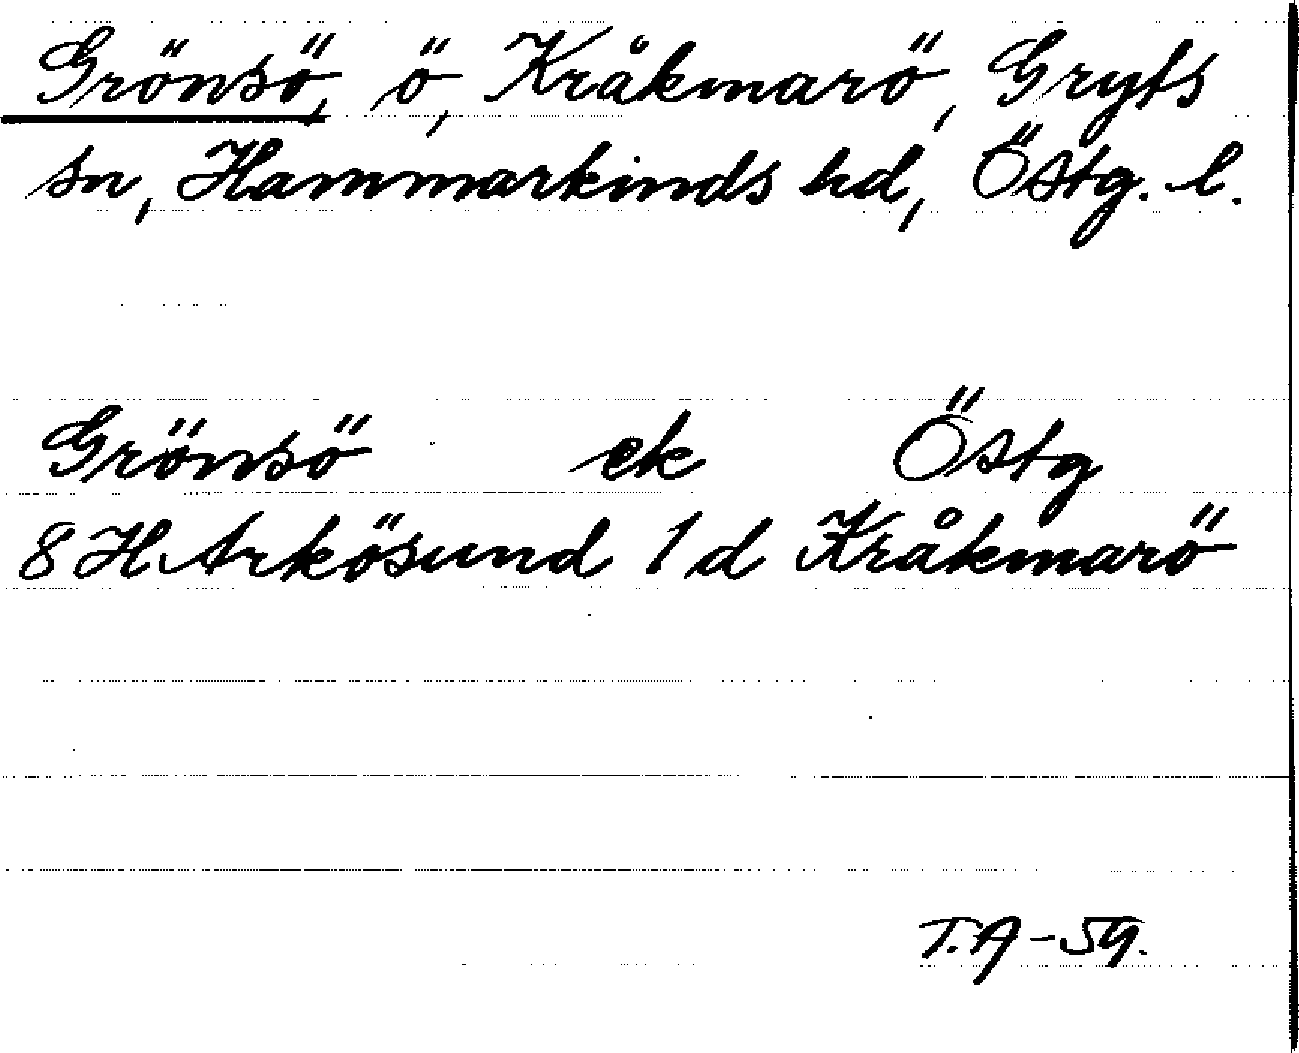 Grönsö, ö, Kråkmarö, Gryts
sn, Hammarkinds hd, Östg. l.
Grönsö ek Östg
8 H Arkösund 1 d Kråkmarö
T.A-59.